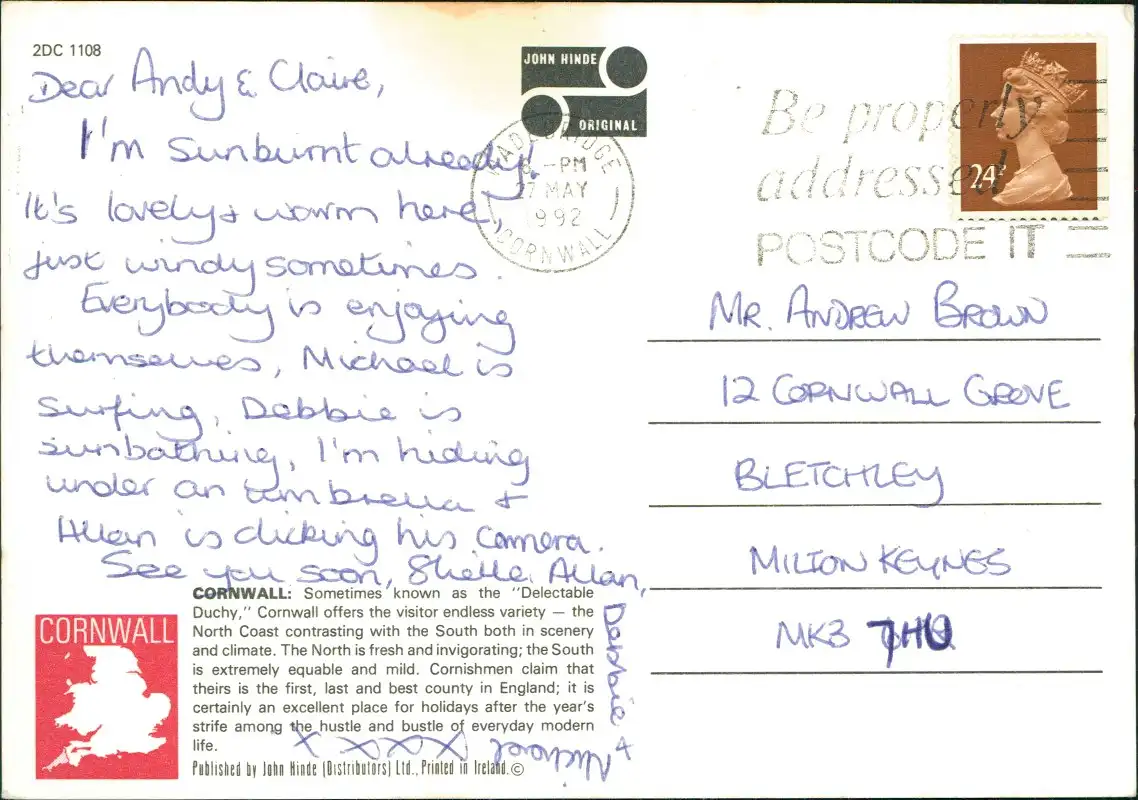 2DC 1108
Dear Andy & Claire,
I'm sunburnt already!
It's lovely + warm here,
just windy sometimes.
Everybody is enjoying
themselves, Michael is
surfing, Debbie is
sunbathing, I'm hiding
under an umbrella +
Allan is clicking his camera.
See you soon, Shelle, Allan,
Debbie +
Michael XXXX
JOHN HINDE
ORIGINAL
WADEBRIDGE
-PM
7 MAY
1992
CORNWALL
Be properly
addressed
POSTCODE IT
24P
MR. ANDREW BROWN
12 CORNWALL GROVE
BLETCHLEY
MILTON KEYNES
MK3
CORNWALL
CORNWALL: Sometimes known as the "Delectable
Duchy," Cornwall offers the visitor endless variety — the
North Coast contrasting with the South both in scenery
and climate. The North is fresh and invigorating; the South
is extremely equable and mild. Cornishmen claim that
theirs is the first, last and best county in England; it is
certainly an excellent place for holidays after the year's
strife among the hustle and bustle of everyday modern
life.
Published by John Hinde (Distributors) Ltd., Printed in Ireland. ©